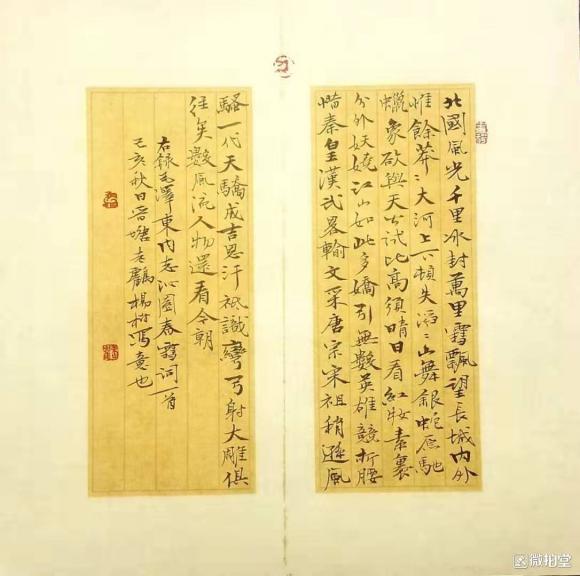 北國風光千里冰封萬里雪飄望長城內外
惟餘莽〻大河上下頓失滔〻山舞銀蛇原馳
蠟象欲與天公試比高須晴日看紅妝素裹
分外妖嬈江山如此多嬌引無數英雄競折腰
惜秦皇漢武畧輸文采唐宗宋祖稍遜風
騷一代天驕成吉思汗祇識彎弓射大雕俱
往矣數風流人物還看今朝
右錄毛澤東同志沁園春雪詞一首
己亥秋日
老鸛楊樹寫意也
微拍堂